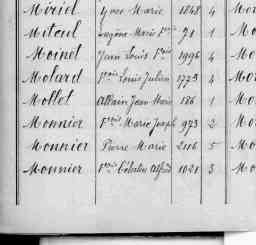 Miriel Yves Marie 1848 4 Mor
Mitoul Eugène Marie Fçois 71 1 Mo
Moinet Jean Louis Fçois 1996 4 Mo
Molard Fçois Louis Julien 1773 4 Mor
Mollet Allain Jean Marie 186 1 Mor
Monnier Fçois Marie Joseph 973 2 Mo
Monnier Pierre Marie 2116 5 Mo
Monnier Fçois Célestin Alfred 1021 3 Mo